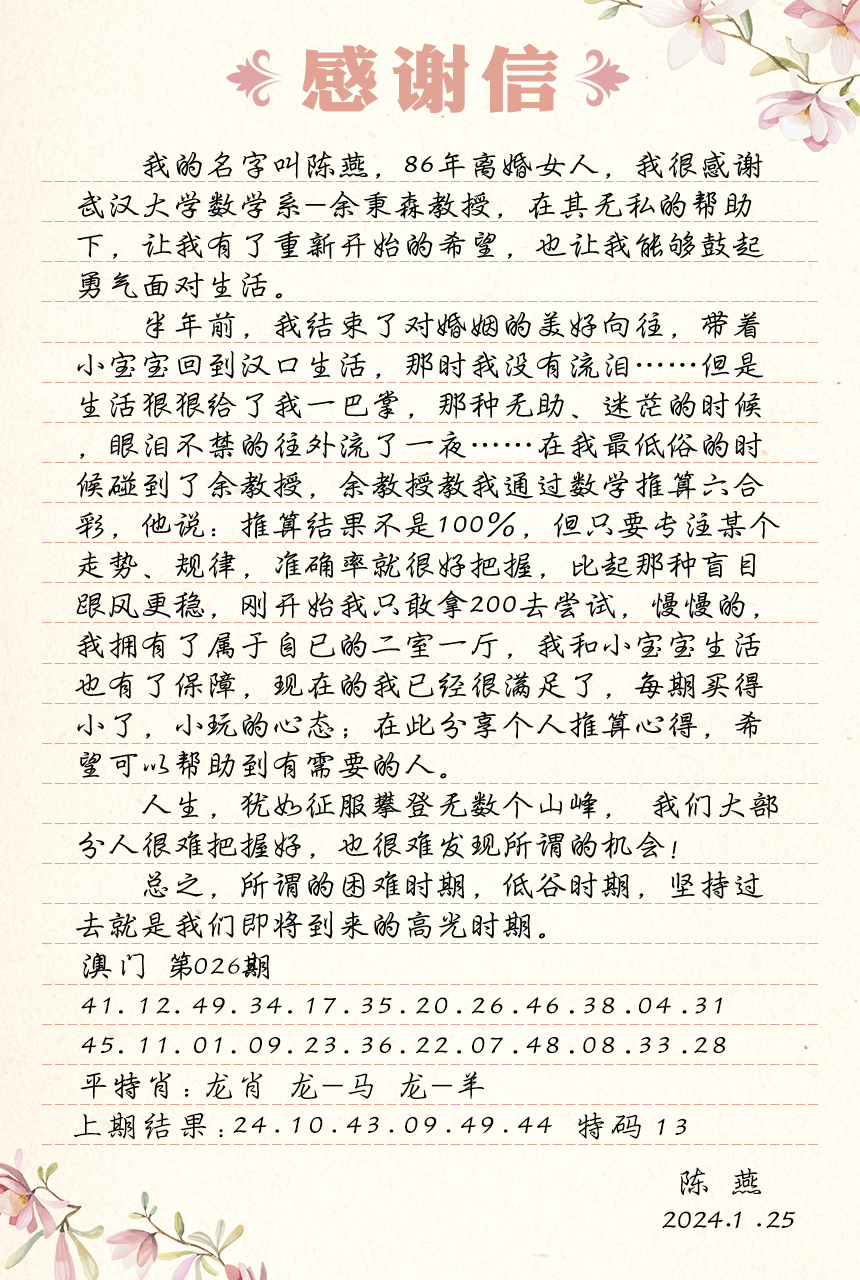 感谢信
我的名字叫陈燕，86年离婚女人，我很感谢
武汉大学数学系—余秉森教授，在其无私的帮助
下，让我有了重新开始的希望，也让我能够鼓起
勇气面对生活。
半年前，我结束了对婚姻的美好向往，带着
小宝宝回到汉口生活，那时我没有流泪……但是
生活狠狠给了我一巴掌，那种无助、迷茫的时候
，眼泪不禁的往外流了一夜……在我最低俗的时
候碰到了余教授，余教授教我通过数学推算六合
彩，他说：推算结果不是100%，但只要专注某个
走势、规律，准确率就很好把握，比起那种盲目
跟风更稳，刚开始我只敢拿200去尝试，慢慢的，
我拥有了属于自已的二室一厅，我和小宝宝生活
也有了保障，现在的我已经很满足了，每期买得
小了，小玩的心态；在此分享个人推算心得，希
望可以帮助到有需要的人。
人生，犹如征服攀登无数个山峰， 我们大部
分人很难把握好，也很难发现所谓的机会！
总之，所谓的困难时期，低谷时期，坚持过
去就是我们即将到来的高光时期。
澳门 第026期
41.12.49.34.17.35.20.26.46.38.04.31
45.11.01.09.23.36.22.07.48.08.33.28
平特肖：龙肖 龙—马 龙—羊
上期结果：24.10.43.09.49.44 特码 13
陈 燕
2024.1.25